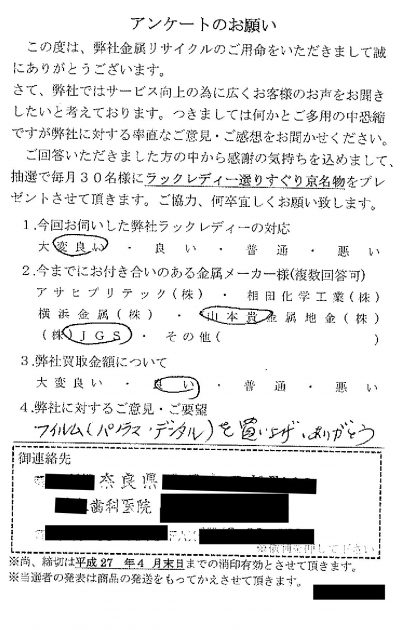 アンケートのお願い
この度は、弊社金属リサイクルのご用命をいただきまして誠
にありがとうございます。
さて、弊社ではサービス向上の為に広くお客様のお声をお聞き
したいと考えております。つきましては何かとご多用の中恐縮
ですが弊社に対する率直なご意見・ご感想をお聞かせください。
ご回答いただきました方の中から感謝の気持ちを込めまして、
抽選で毎月30名様にラックレディー選りすぐり京名物をプレ
ゼントさせて頂きます。ご協力、何卒宜しくお願い致します。
1.今回お伺いした弊社ラックレディーの対応
大変良い ・ 良い ・ 普通 ・ 悪い
2.今までにお付き合いのある金属メーカー様(複数回答可)
アサヒプリテック(株) ・ 相田化学工業(株)
横浜金属(株) ・ 山本貴金属地金(株)
(株)JGS ・ その他( )
3.弊社買取金額について
大変良い ・ 良い ・ 普通 ・ 悪い
4.弊社に対するご意見・ご要望
フィルム(パノラマ・デンタル)を買い上げ、ありがとう
御連絡先
奈良県
歯科医院
※尚、締切は平成27 年4 月末日までの消印有効とさせて頂きます。
※当選者の発表は商品の発送をもってかえさせて頂きます。